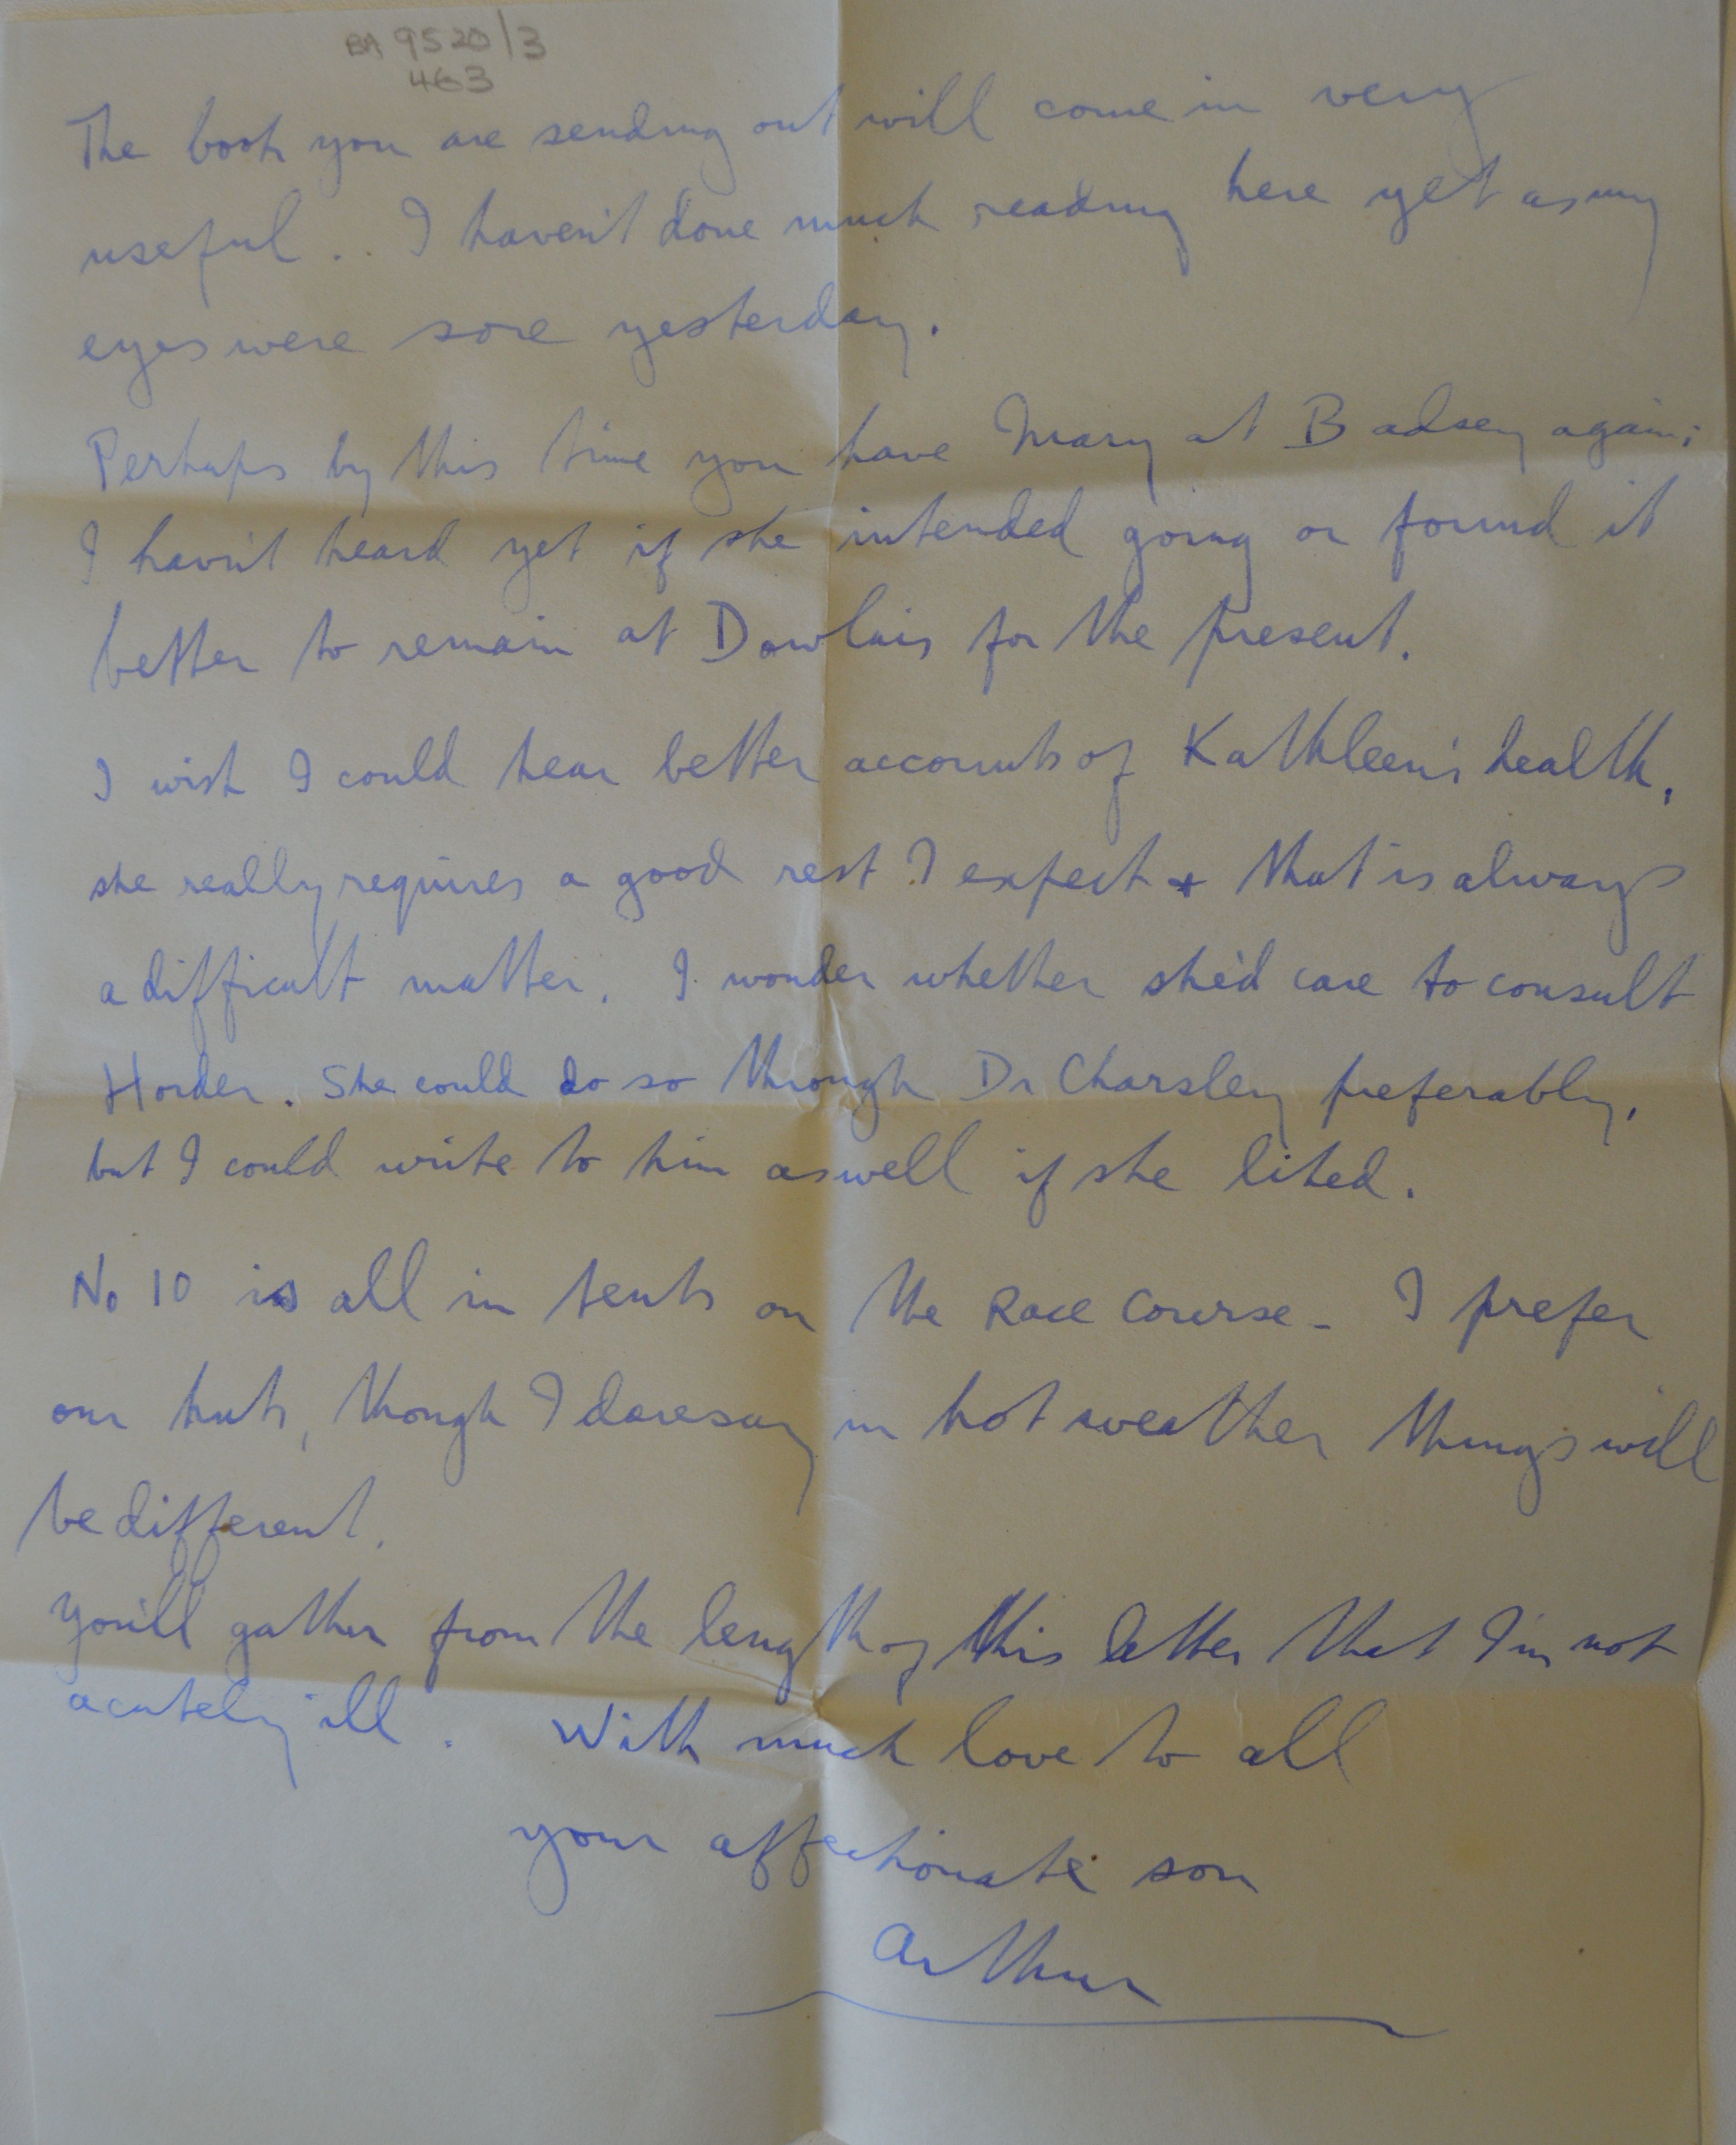 BA 9520/3
463
The book you are sending out will come in very
useful .. I haven't done much reading here yet as my
eyes were sore yesterday.
Perhaps by this time you have Mary at Badsey again;
I hav'nt heard yet if she intended going or found it
better to remain at Dowlais for the present.
I wish I could hear better accounts of Kathleen's health,
she really requires a good rest I expect + that is always
a difficult matter. I wonder whether she'd care to consult
Horder. She could do so through Dr Charsley preferably,
but I could write to him as well if she liked.
No 10 is all in tents on the Race Course - I prefer
our huts, though I daresay in hot weather things will
be different.
You'll gather from the length of this letter that I'm not
acutely ill. With much love to all
your affectionate son
Arthur